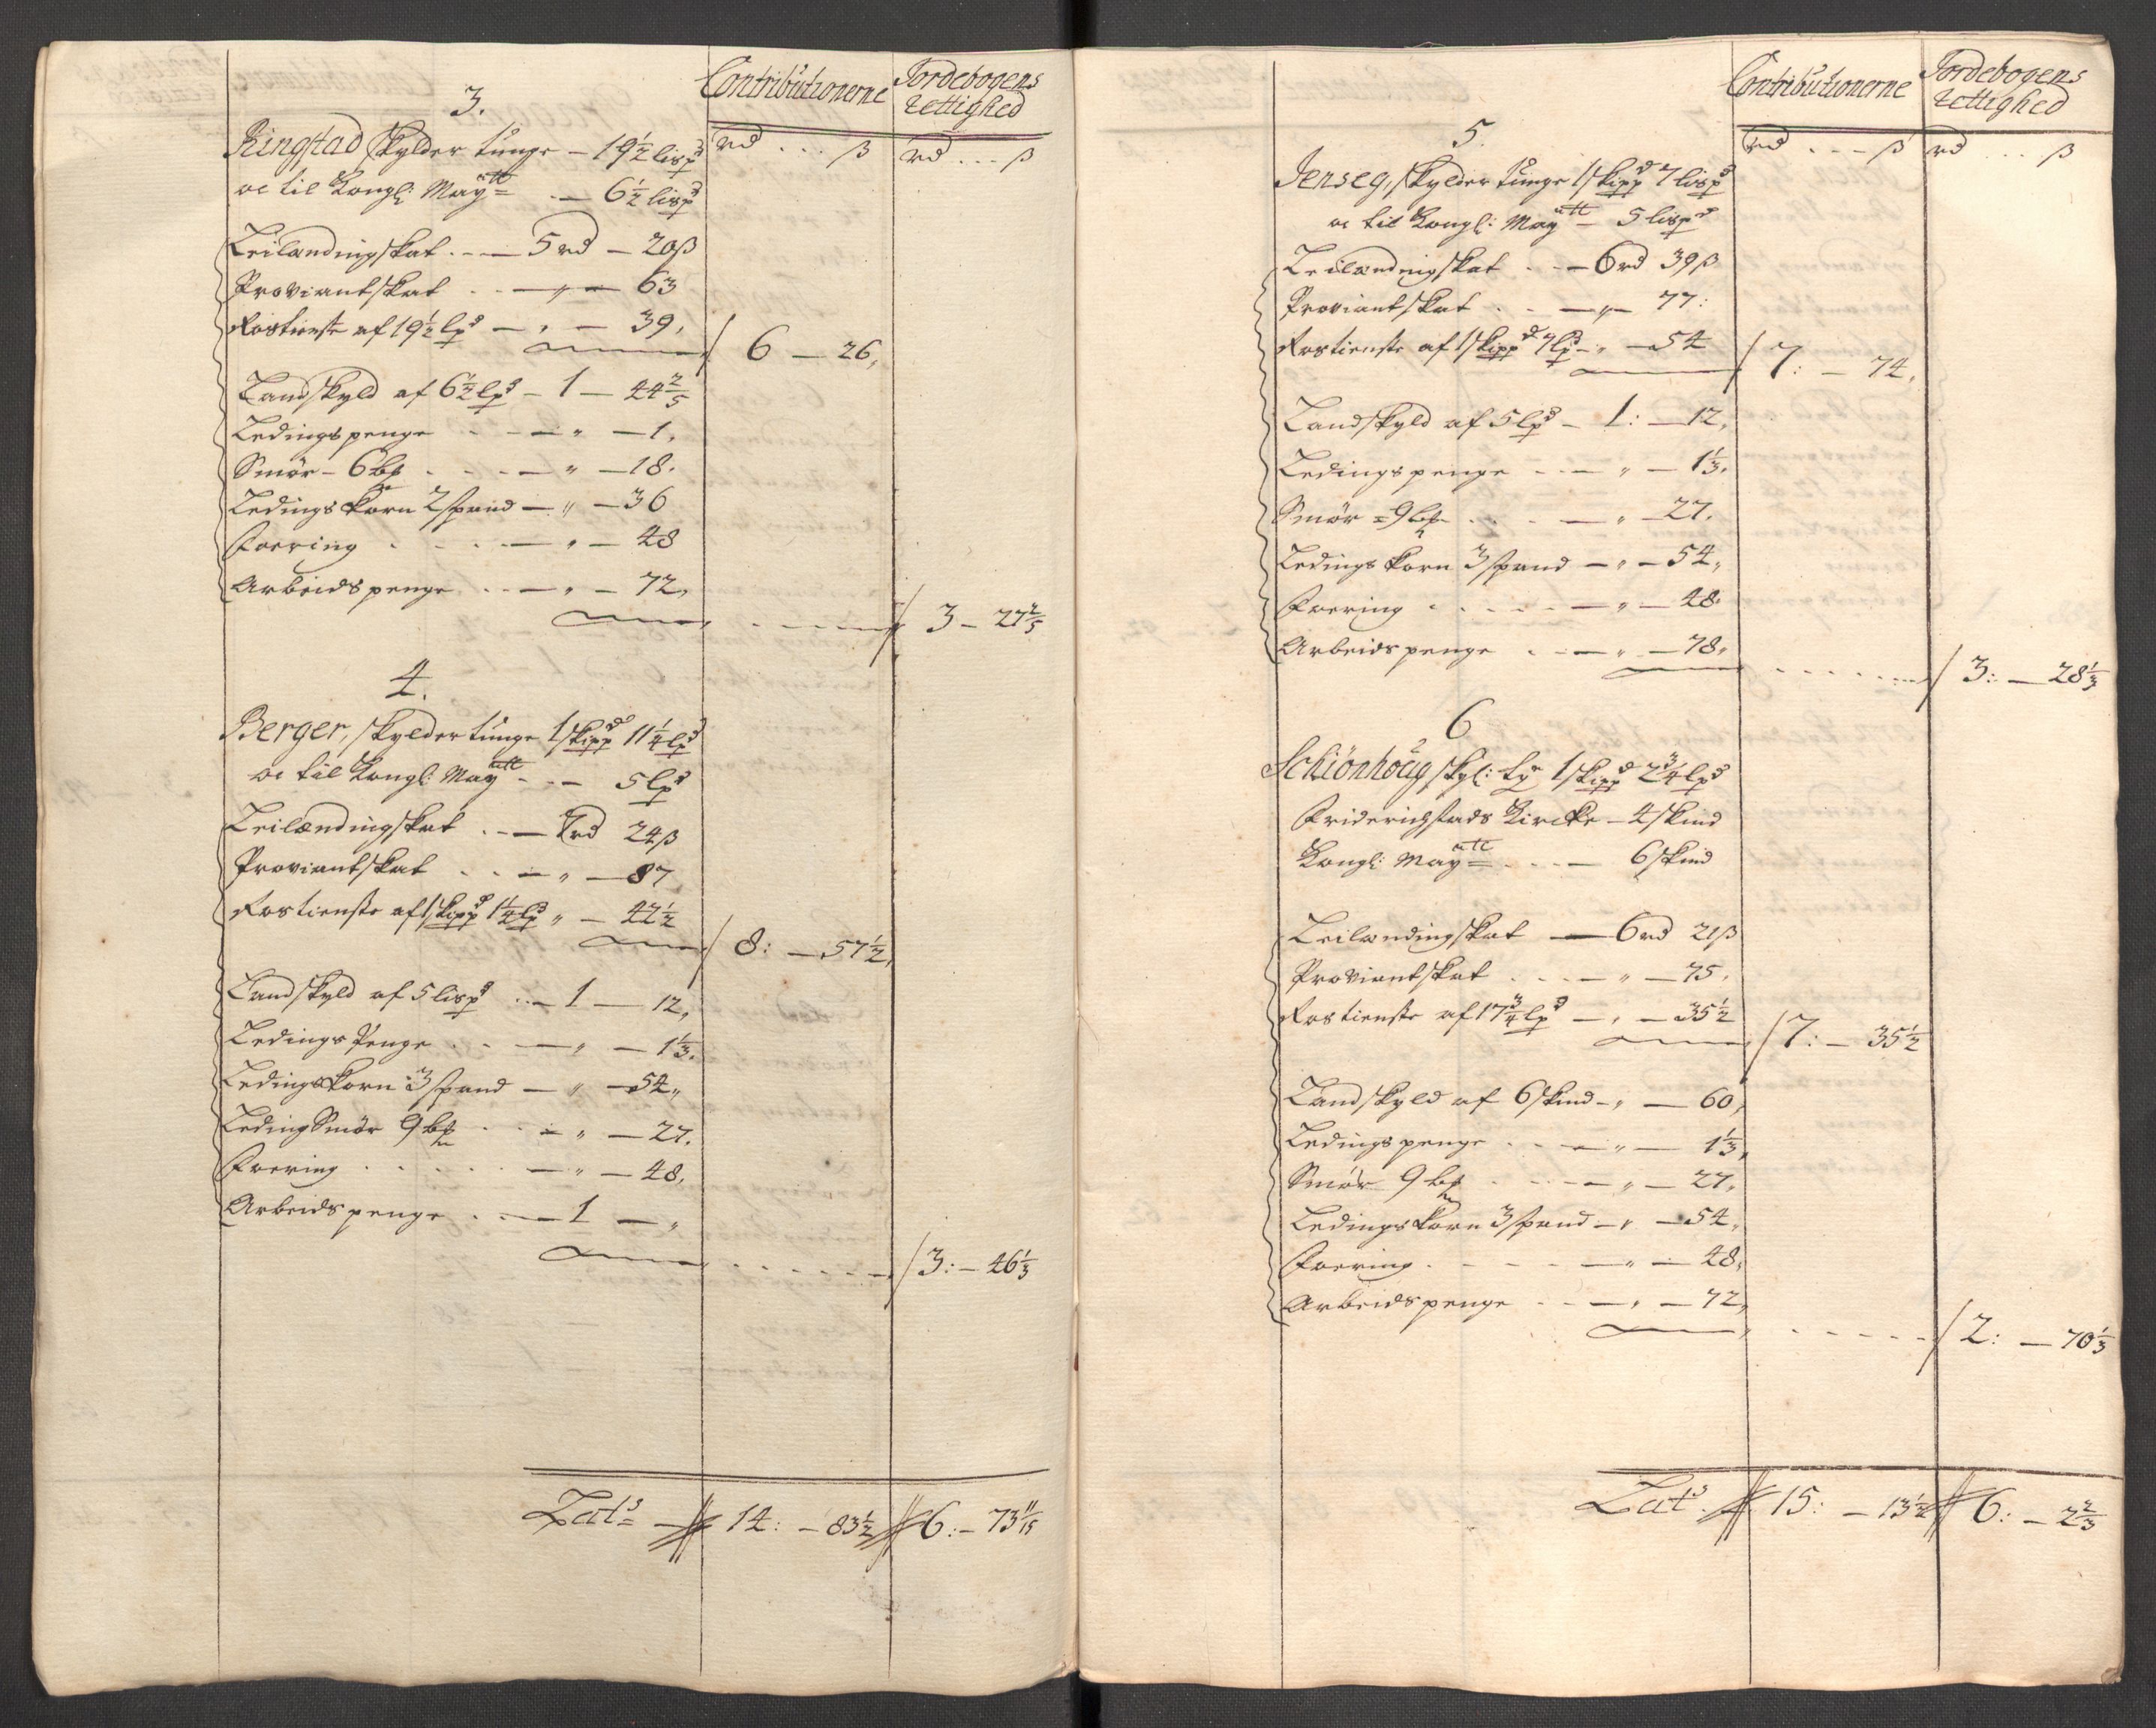 Contributionerne Jordebogens
rettighed
3.
rd ... ß rd ... ß
Ringstad skylder tunge - 19½ lispd
oc til Kongl: Maytt - 6½ lispd
Leilændingskat - 5 rd - 20 ß
Proviantskat - " - 63
Rostieneste af 19½ lpd - " - 39,
6 - 26,
Landskyld af 6½ lpd - 1 - 44 2/5
Ledingspenge - " - 1,
Smør - 6 bp - " - 18.
Ledings korn 2 spand - " - 36
Foering - " - 48
Arbeidspenge - " - 72,
3 - 27 2/5
4.
Berger, skylder tunge 1 skippd 11¼ lpd
oc til Kongl: Maytt - 5 lpd
Leilændingskat - 7 rd 24 ß
Proviantskat - " - 87
Rostieneste af 1 skippd 1¼ lpd " - 42½
8: - 57½,
Landskyld af 5 lispd - 1 - 12,
Ledings Penge - " - 1⅓.
Ledingskorn 3 spand - " - 54,,
Leding Smør 9 bp - " - 27.
Foering - " - 48,
Arbeidspenge - 1 - "
3: - 46⅓
Lats - 14: - 83½ 6: - 73 11/15
Contributionerne Jordebogens
rettighed
5.
rd ... ß rd ... ß
Jenseg, skylder tunge 1 skippd 7 lispd
oc til Kongl: Maytt - 5 lispd
Leilændingskat - 6 rd 39 ß
Proviantskat - " - 77:
Rostieneste af 1 skippd 7 lpd - " - 54
7: - 74,
Landskyld af 5 lpd - 1: - 12,
Ledingspenge - " - 1⅓.
Smør - 9 bp - " - 27.
Ledings korn 3 spand - " - 54,
Foering - " - 48.
Arbeidspenge - " - 78,
3: - 28⅓
6
Schiönhöug skyl: tge 1 skippd 2¾ lpd
Friderichstads Kircke - 4 skind
Kongl: Maytt - 6 skind
Leilændingskat - 6 rd 21 ß
Proviantskat - " - 75.
Rostieneste af 17¾ lpd - " - 35½
7: - 35½
Landskyld af 6 skind - " - 60,
Ledingspenge - " - 1⅓,
Smør 9 bp - " - 27,
Ledings korn 3 spand - " - 54,
Foering - " - 48,
Arbeidspenge - " - 72,
2: - 70⅓
Lats 15: - 13½ 6: - 2⅔